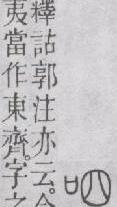 呬
釋詁郭注亦云。今
夷當作東齊。字之